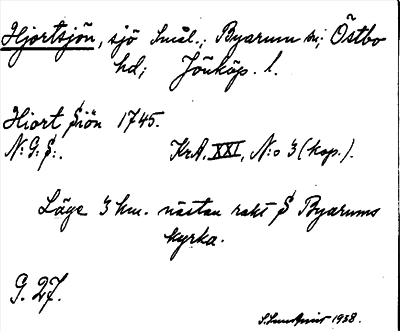 Hjortsjön, sjö Smål.; Byarum sn; Östbo
hd; Jönköp. l.
Hiort Siön 1745.
N: G: S:. KrA, XXI, N:o 3 (kop.).
Läge 3 km. nästan rakt S Byarums
kyrka.
G. 27.
S. Lundqvist 1928.